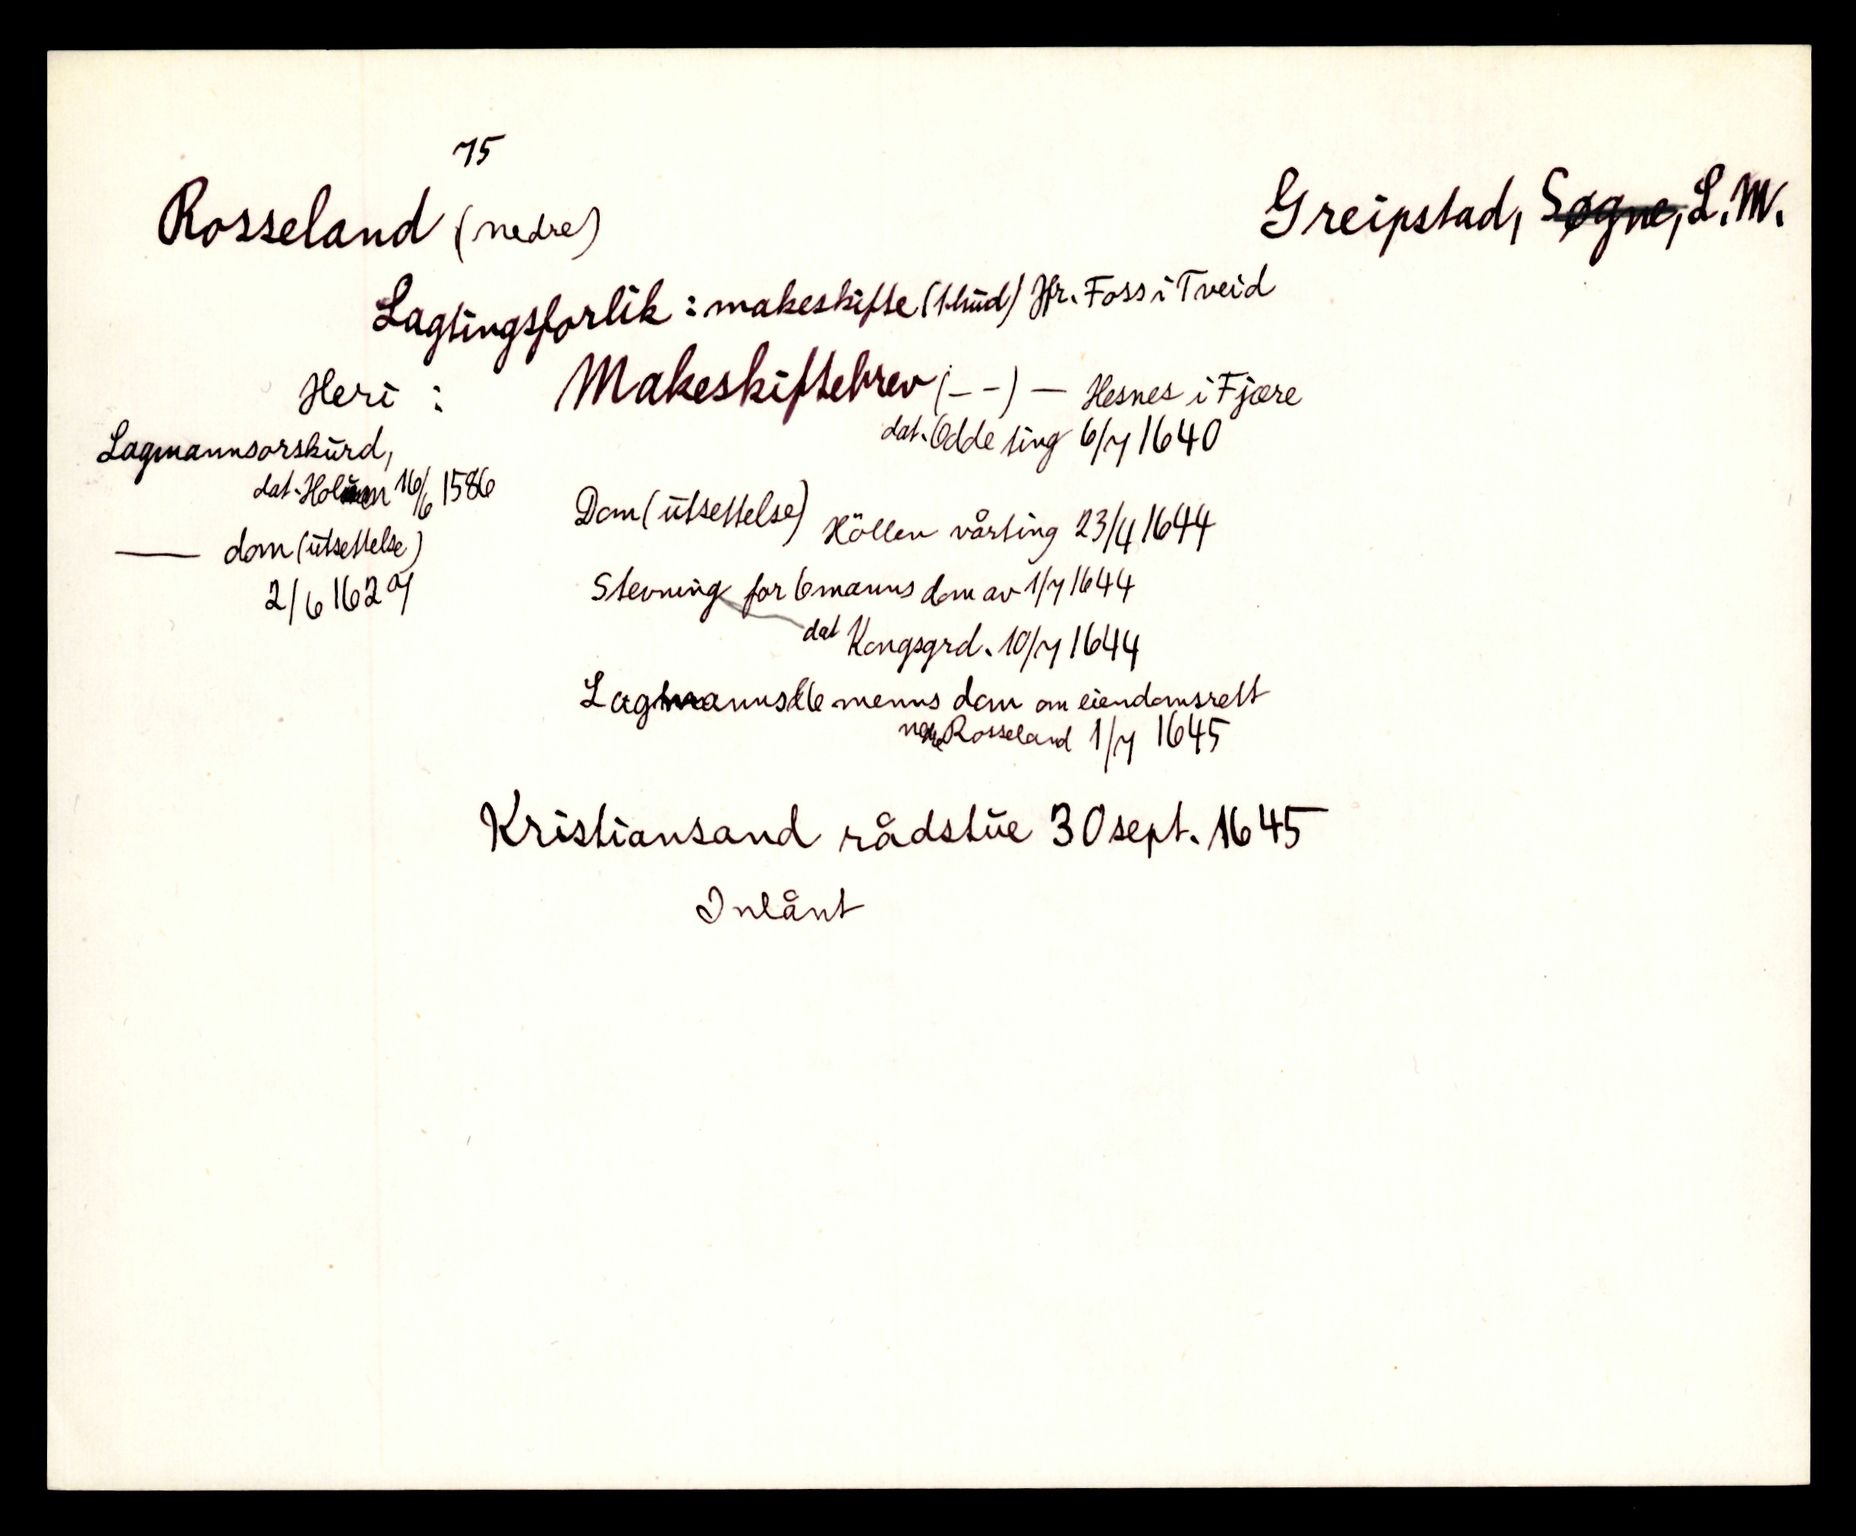 75
Rosseland (nedre)
Greipstad, Søgne, L.M.
Lagtingsforlik: makeskifte (1 hud) Jfr. Foss i Tveid
Heri : Makeskiftebrev (– –) — Hesnes i Fjære
dat. Odde ting 6/7 1640
Lagmannsorskurd,
dat. Holmen 16/6 1586
— dom (utsettelse)
2/6 1629
Dom (utsettelse) Höllen vårting 23/4 1644
Stevning for 6manns dom av 1/7 1644
dat Kongsgrd. 10/7 1644
Lagmanns 6 menns dom om eiendomsrett
nedre Rosseland 1/7 1645
Kristiansand rådstue 30 sept. 1645
Inlånt